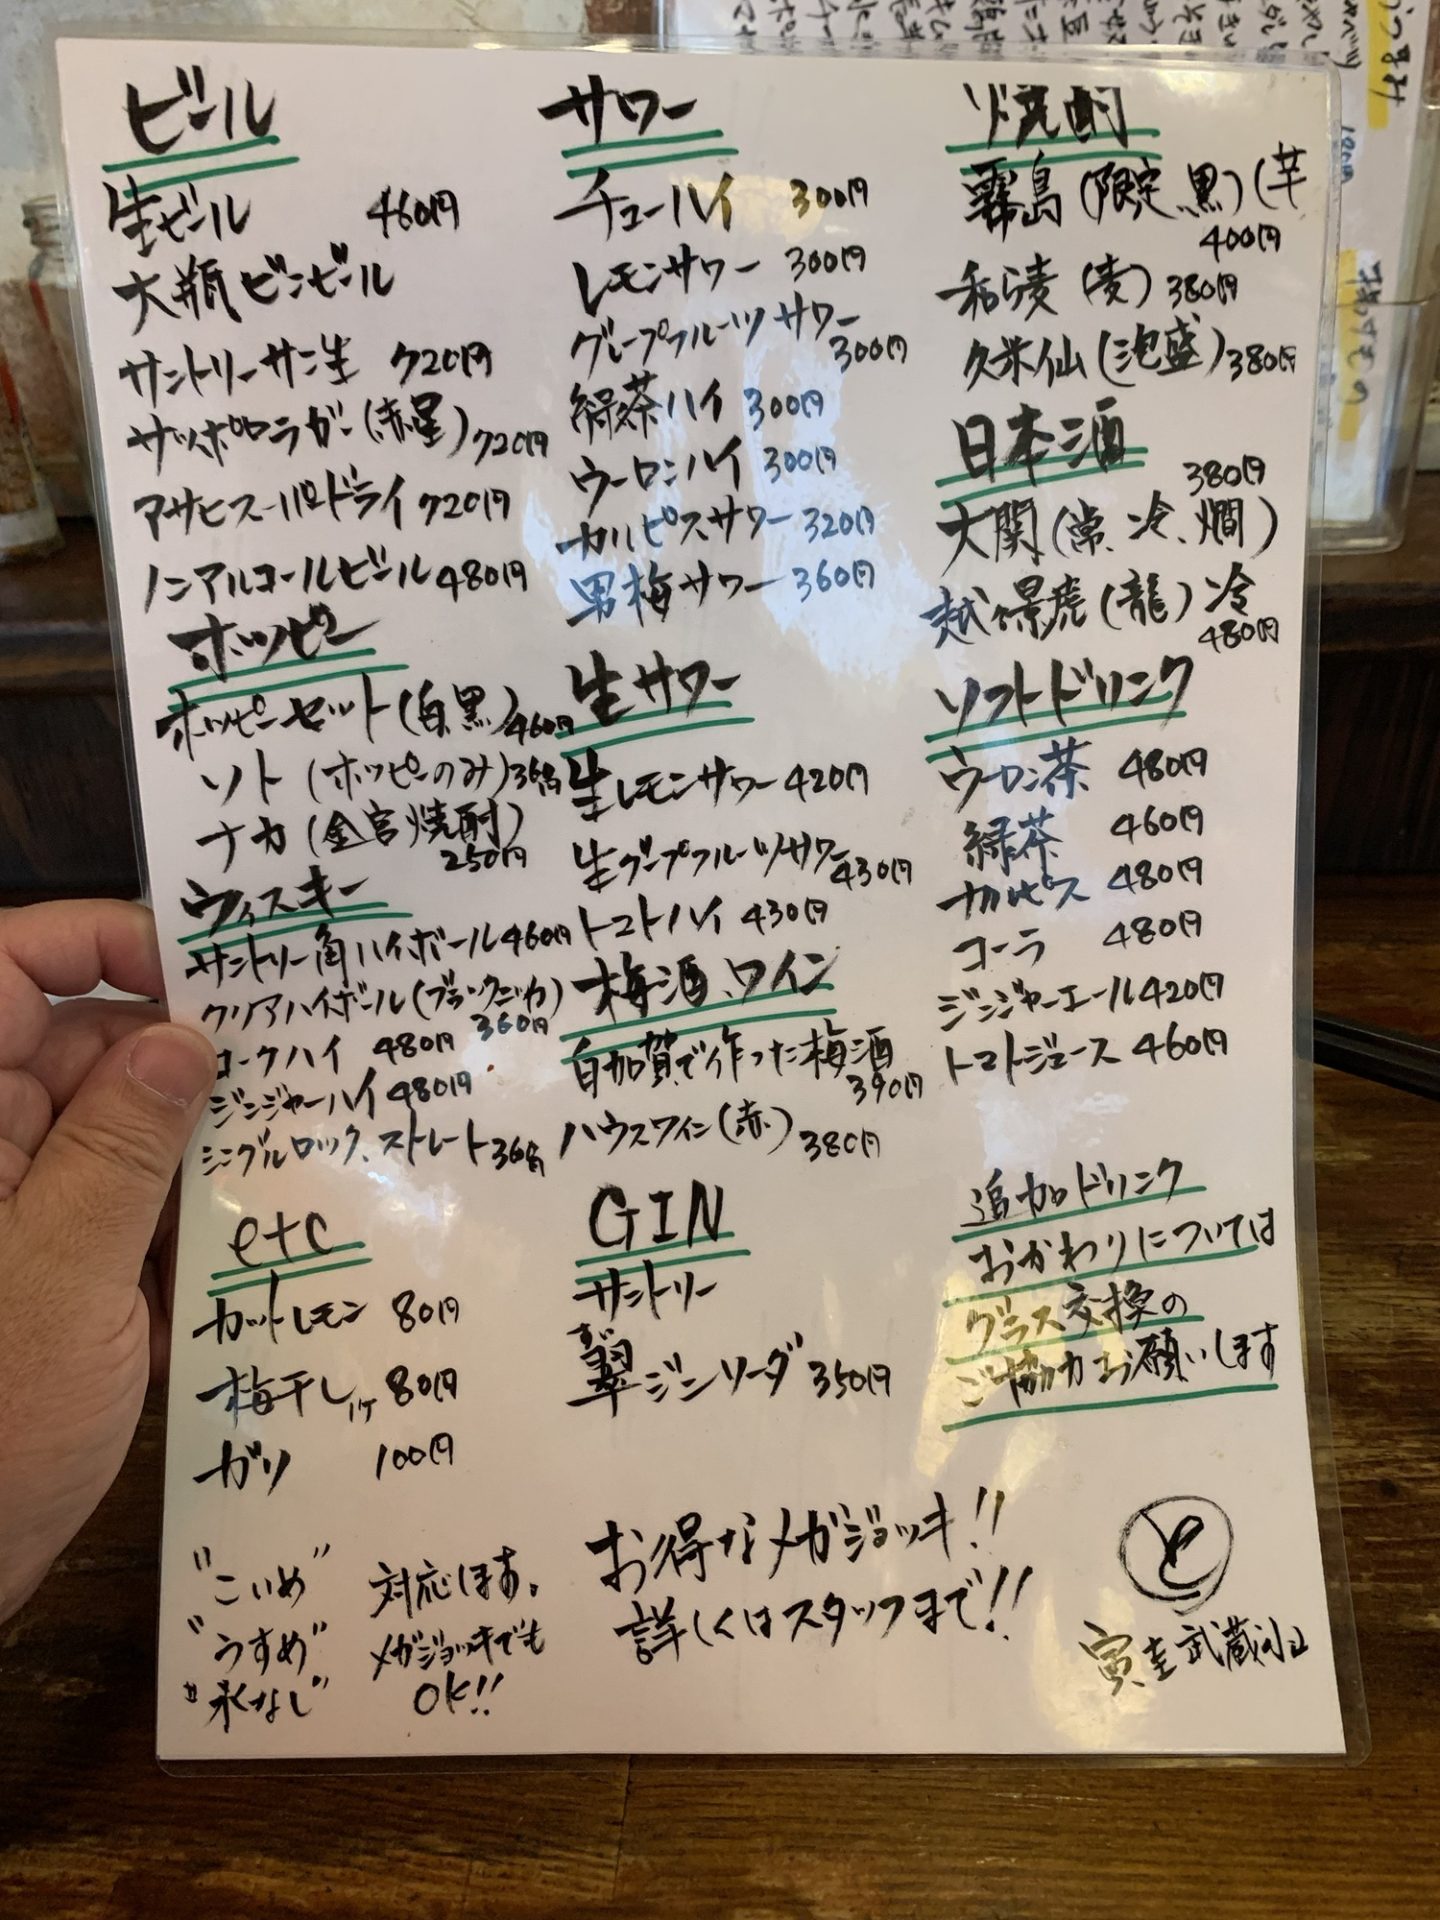 ビール
生ビール 460円
大瓶ビンビール
サントリーサン生 720円
サッポロラガー(赤星) 720円
アサヒスーパードライ 720円
ノンアルコールビール 480円
ホッピー
ホッピーセット(白黒) 460円
ソト (ホッピーのみ) 360円
ナカ (金宮焼酎)
250円
ウィスキー
サントリー角ハイボール 460円
クリアハイボール(ブラックニッカ)
360円
コークハイ 480円
ジンジャーハイ 480円
シングルロック、ストレート 360円
etc
カットレモン 80円
梅干し1ケ 80円
ガリ 100円
"こいめ"
"うすめ"
"氷なし"
対応します。
メガジョッキでも
OK!!
サワー
チューハイ 300円
レモンサワー 300円
グレープフルーツサワー
300円
緑茶ハイ 300円
ウーロンハイ 300円
カルピスサワー 320円
男梅サワー 360円
生サワー
生レモンサワー 420円
生グープフルーツサワー 430円
トマトハイ 430円
梅酒、ワイン
白加賀で作った梅酒
390円
ハウスワイン(赤) 380円
GIN
サントリー
翠ジンソーダ 350円
お得なメガジョッキ!!
詳しくはスタッフまで!!
焼酎
霧島(限定、黒)(芋
400円
和ら麦 (麦) 380円
久米仙(泡盛) 380円
日本酒
380円
大関(常、冷、燗)
越後景虎(龍) 冷
480円
ソフトドリンク
ウーロン茶 480円
緑茶 460円
カルピス 480円
コーラ 480円
ジンジャーエール 420円
トマトジュース 460円
追加ドリンク
おかわりについては
グラス交換の
ご協力お願いします
と
寅圭 武蔵小山